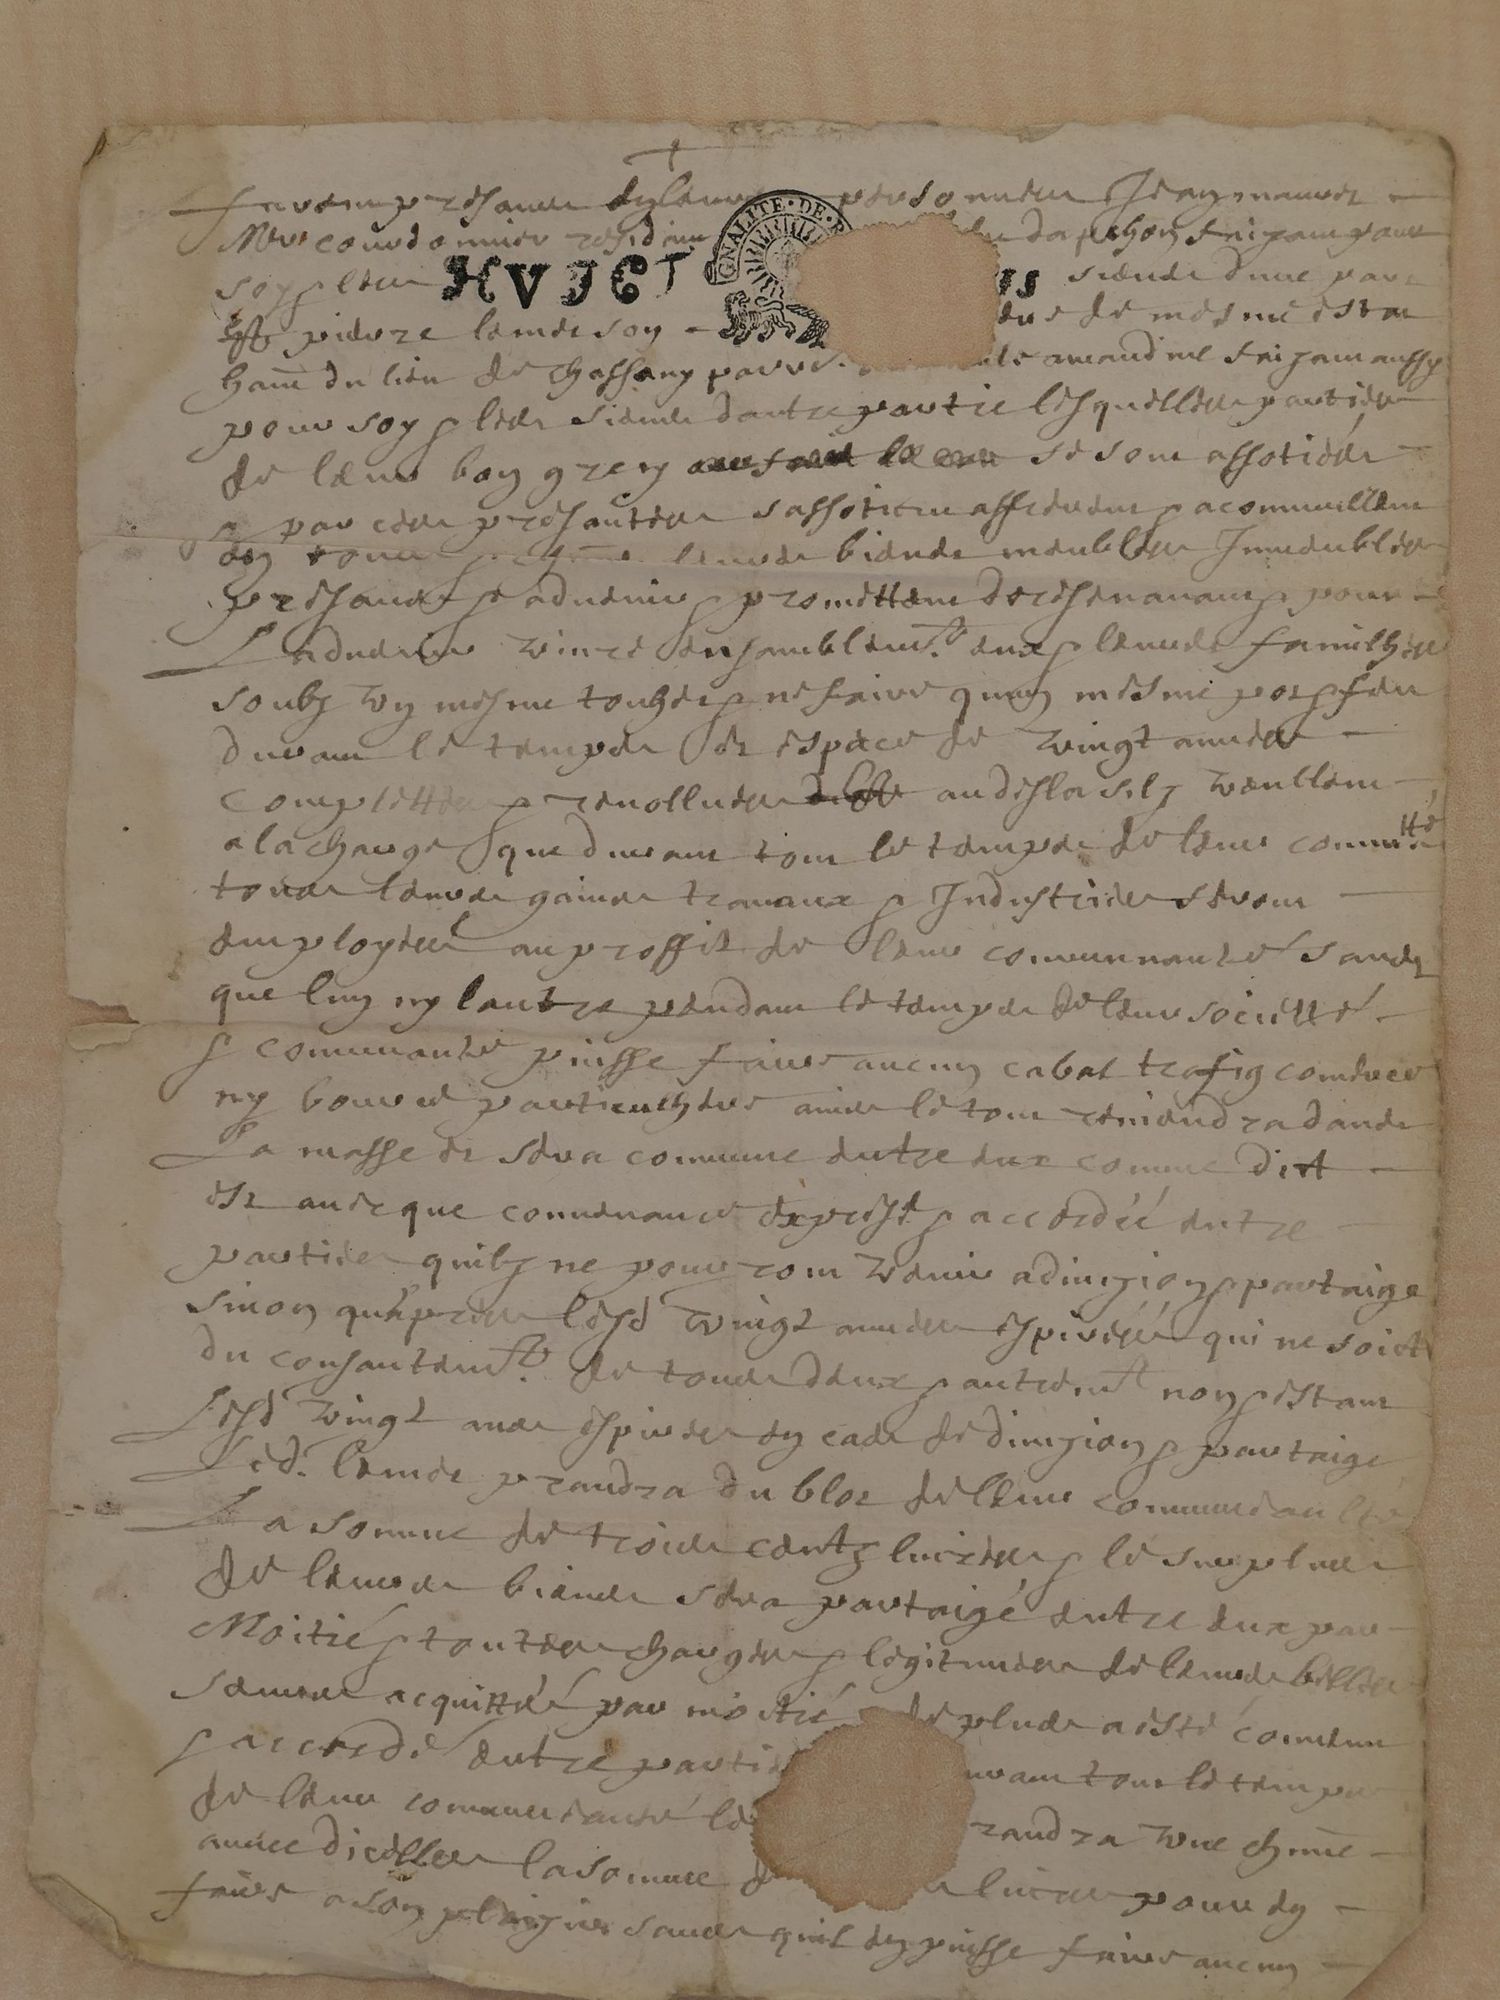 personnellement Jean mauvet
Mre courdonnier residant du dapchon faisant pour
GNALITE · DE · R
HVICT
soy & les siens d'une part
& pierre lemer soy de mesme estat
du lieu de Chassang faisant aussy
pour soy & les siens dautre partie lesquelles parties
de leur bon gre se sont assotiées
& par ces presantes sassotient & acommeullent
en tous & leurs biens meubles Immeubles
presans & advenir & promettent doresenavant & pour
Ladvenir vivre ensamblemt. eux & leurs familhes
soubz un mesme touhet & ne faire quun mesme pot & feu
durant le temps et espace de vingt annees
complettes & revollues audela silz veullent
a la charge que durant tout le temps de leur communtté
tous leurs gains travaux & Industries seront
employées au proffit de leur communauté sans
que lun ny lautre pendant le temps de leur sociètté
& communauté puisse faire aucun cabal trafiq comerce
ny bource particulhere ains le tout reviendra dans
La masse et sera commune entre eux comme dict
est avec que convenance expresse & accordée entre
parties quilz ne pourront venir a divizion & partaige
sinon quapres lesd vingt annees expirées qui ne soict
du consantemt. de tous deux & autremt non & estant
Lesd vingt ans expirés en cas de divizion & partaige
Led. lemer prandra du bloc de leur communeaulté
La somme de trois centz livres & le surplus
de leurs biens sera partaigé entre eux par
Moitié & toutes charges & legitimes de leurs
seront acquittés par moitié de plus a esté convenu
& accordé entre parties durant tout le temps
de leur communeauté le prandra une chmne
annee dicelles la somme livres pour en
faire a son plaizir sans quil en puisse faire aucun